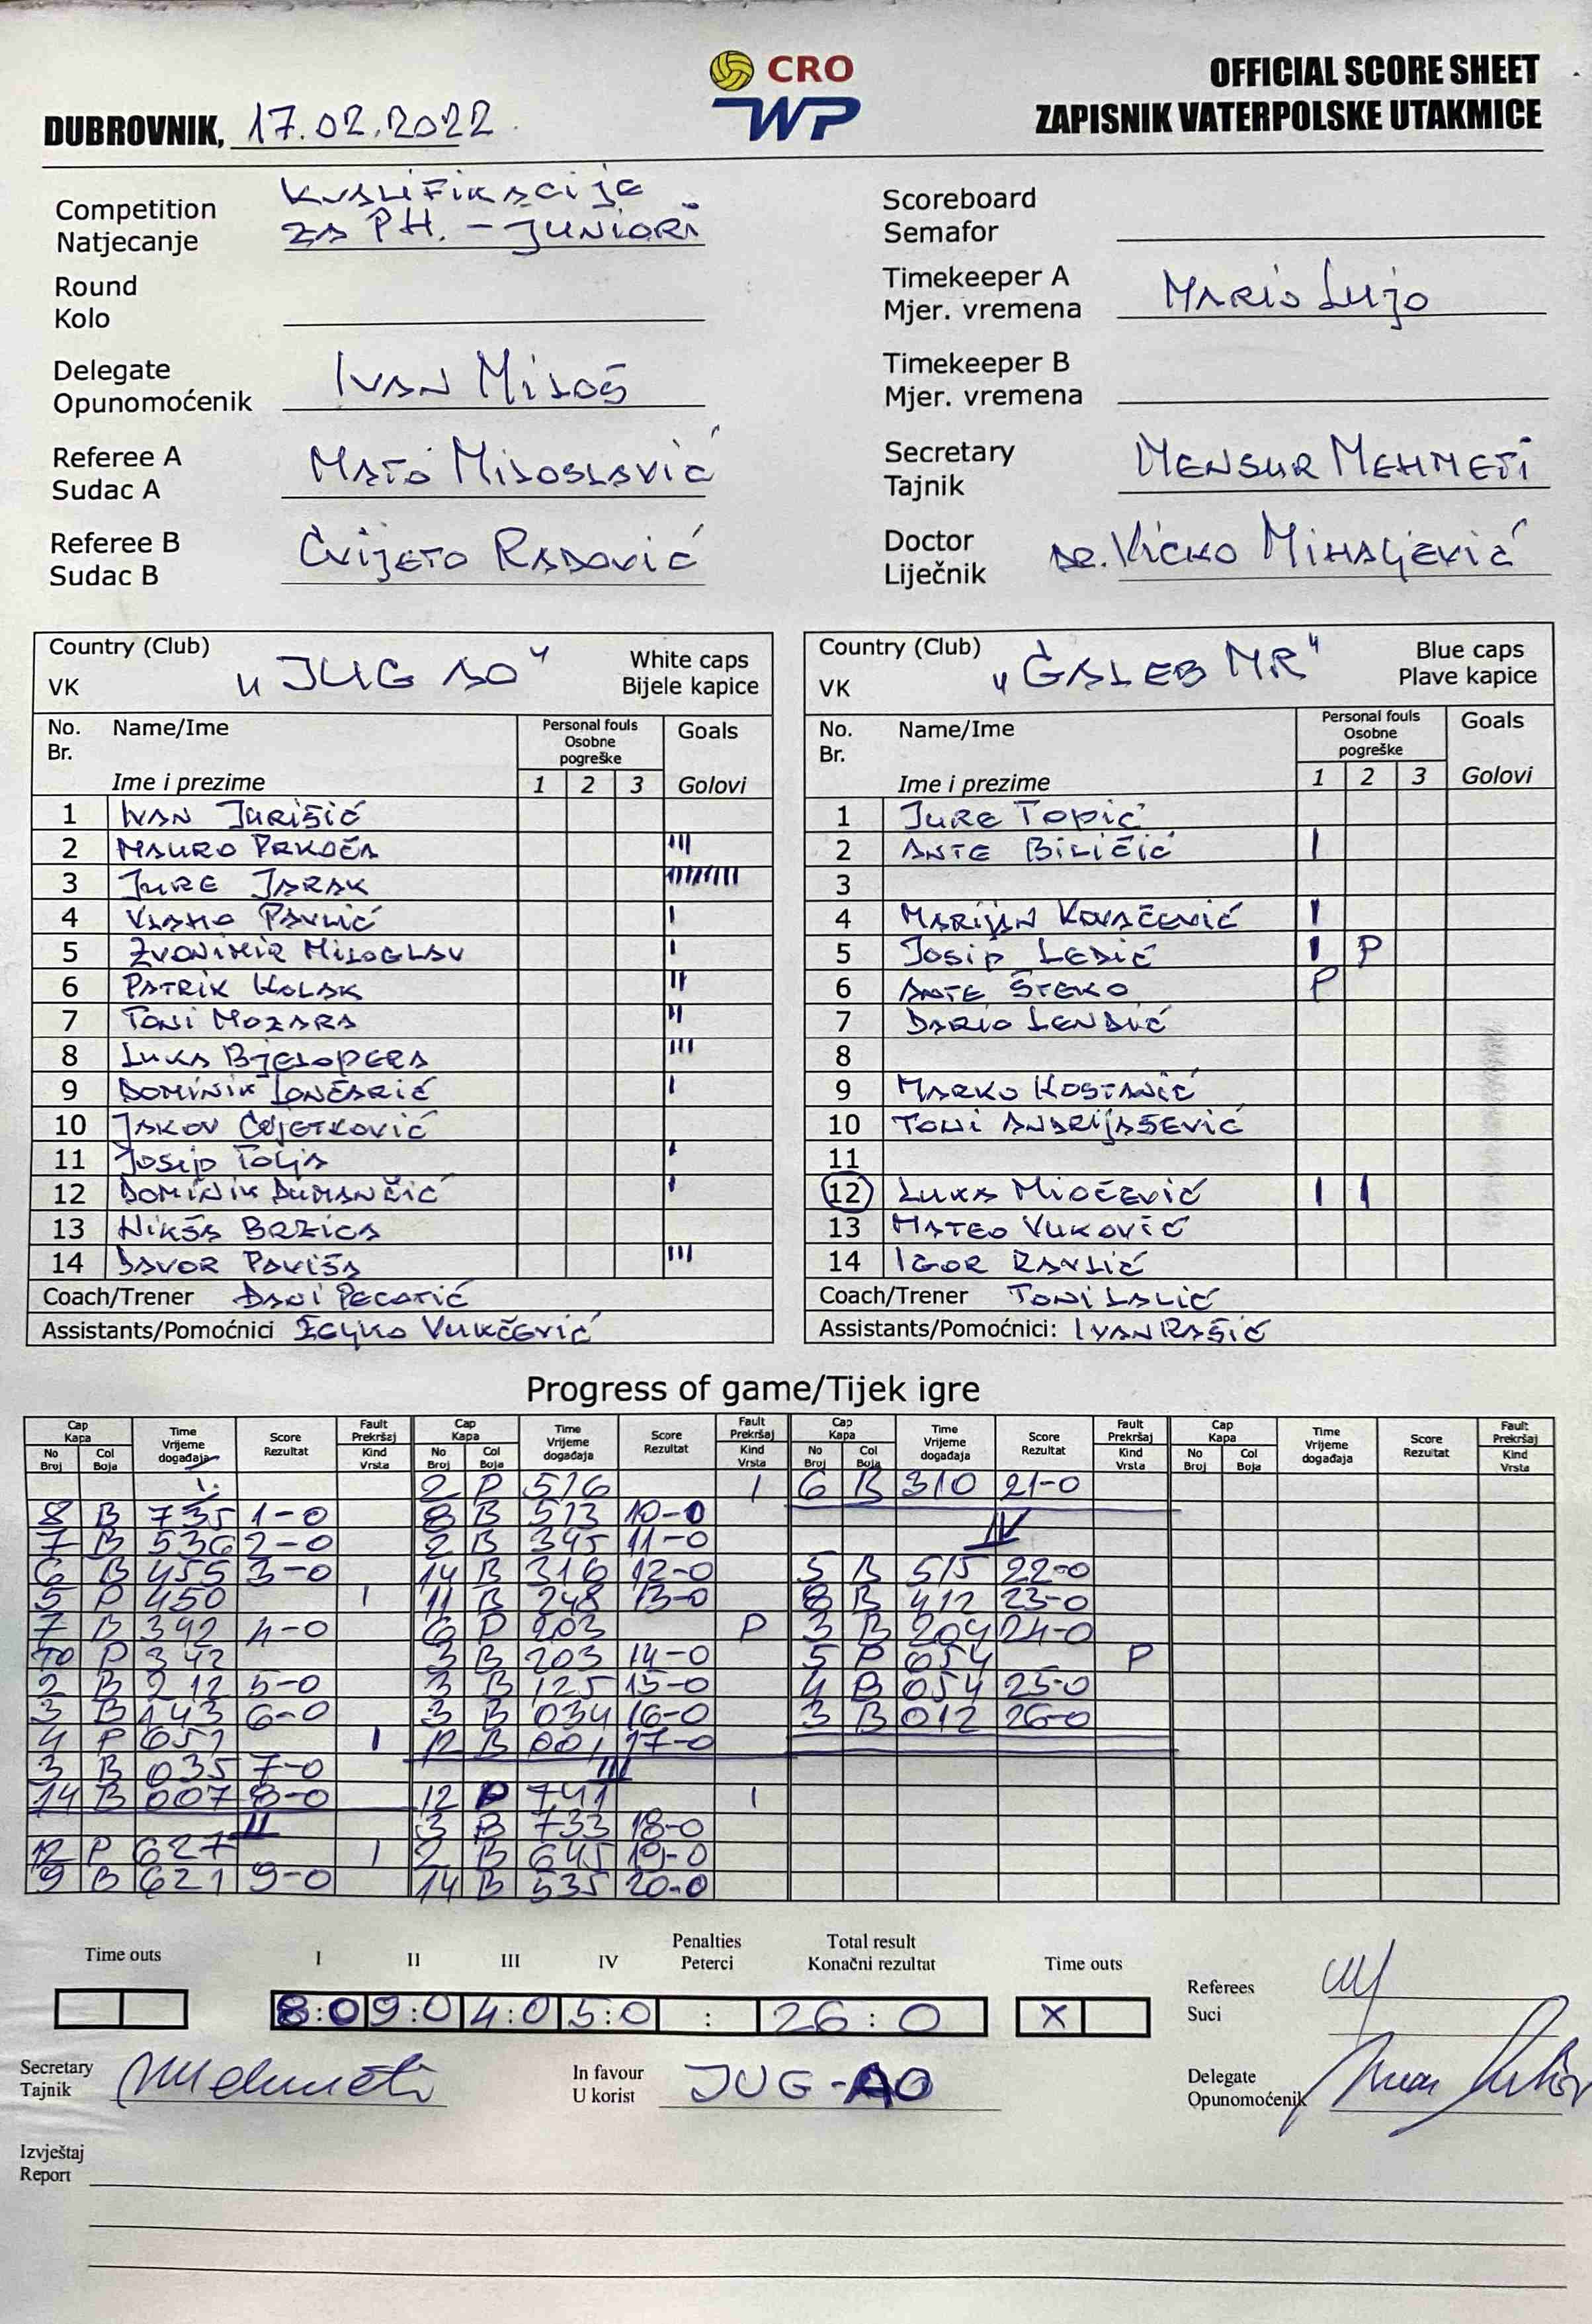 CRO
WP
OFFICIAL SCORE SHEET
ZAPISNIK VATERPOLSKE UTAKMICE
DUBROVNIK, 17.02.2022.
Competition
Natjecanje
KVALIFIKACIJE
ZA PH. - JUNIORI
Round
Kolo
Delegate
Opunomoćenik
IVAN MILOŠ
Referee A
Sudac A
MATO MILOSLAVIĆ
Referee B
Sudac B
CVIJETO RADOVIĆ
Scoreboard
Semafor
Timekeeper A
Mjer. vremena
MARIO LUJO
Timekeeper B
Mjer. vremena
Secretary
Tajnik
MENSUR MEHMETI
Doctor
Liječnik
DR. VICKO MIHALJEVIĆ
Country (Club)
VK
„JUG AO"
White caps
Bijele kapice
No. Name/Ime Personal fouls Goals
Br. Osobne pogreške
Ime i prezime 1 2 3 Golovi
1 IVAN JURIŠIĆ
2 MAURO PRKAČA III
3 JURE JARAK IIIIIIII
4 VLAHO PAVLIĆ I
5 ZVONIMIR MILOGLAV I
6 PATRIK KOLAK II
7 TONI MOZARA II
8 LUKA BJELOPERA III
9 DOMINIK LONČARIĆ I
10 JAKOV CVJETKOVIĆ
11 JOSIP TOLJA I
12 DOMINIK DUMANČIĆ I
13 NIKŠA BRZICA
14 DAVOR PAVIŠA III
Coach/Trener
Assistants/Pomoćnici VUKČEVIĆ
Country (Club)
VK
„GALEB MR"
Blue caps
Plave kapice
No. Name/Ime Personal fouls Goals
Br. Osobne pogreške
Ime i prezime 1 2 3 Golovi
1 JURE TOPIĆ
2 ANTE BILIČIĆ I
3
4 MARIJAN KOVAČEVIĆ I
5 JOSIP LEDIĆ I P
6 ANTE ŠTEKO P
7 DARIO LENDIĆ
8
9 MARKO KOSTANIĆ
10 TONI ANDRIJAŠEVIĆ
11
12 LUKA MIOČEVIĆ I I
13 MATEO VUKOVIĆ
14 IGOR RAVLIĆ
Coach/Trener TONI LALIĆ
Assistants/Pomoćnici: IVAN RAŠIĆ
Progress of game/Tijek igre
Cap Kapa Time Vrijeme događaja Score Rezultat Fault Prekršaj
No Broj Col Boja Kind Vrsta
Cap Kapa Time Vrijeme događaja Score Rezultat Fault Prekršaj
No Broj Col Boja Kind Vrsta
Cap Kapa Time Vrijeme događaja Score Rezultat Fault Prekršaj
No Broj Col Boja Kind Vrsta
Cap Kapa Time Vrijeme događaja Score Rezultat Fault Prekršaj
No Broj Col Boja Kind Vrsta
I.
8 B 735 1-0
7 B 536 2-0
6 B 455 3-0
5 P 450 I
7 B 392 4-0
10 P 342
2 B 212 5-0
3 B 143 6-0
4 P 051 I
3 B 035 7-0
14 B 007 8-0
II
12 P 627 I
9 B 621 9-0
2 P 516 I
8 B 513 10-0
2 B 345 11-0
14 B 316 12-0
11 B 248 13-0
6 P 203 P
3 B 203 14-0
3 B 125 15-0
3 B 034 16-0
12 B 001 17-0
III
12 P 741 I
3 B 733 18-0
2 B 645 19-0
14 B 535 20-0
6 B 310 21-0
IV
5 B 515 22-0
8 B 412 23-0
3 B 204 24-0
5 P 054 P
4 B 054 25-0
3 B 012 26-0
Time outs
I II III IV
Penalties
Peterci
Total result
Konačni rezultat
Time outs
8:0 9:0 4:0 5:0 : 26:0
X
Referees
Suci
Secretary
Tajnik
In favour
U korist
JUG-AO
Delegate
Opunomoćenik
Izvještaj
Report